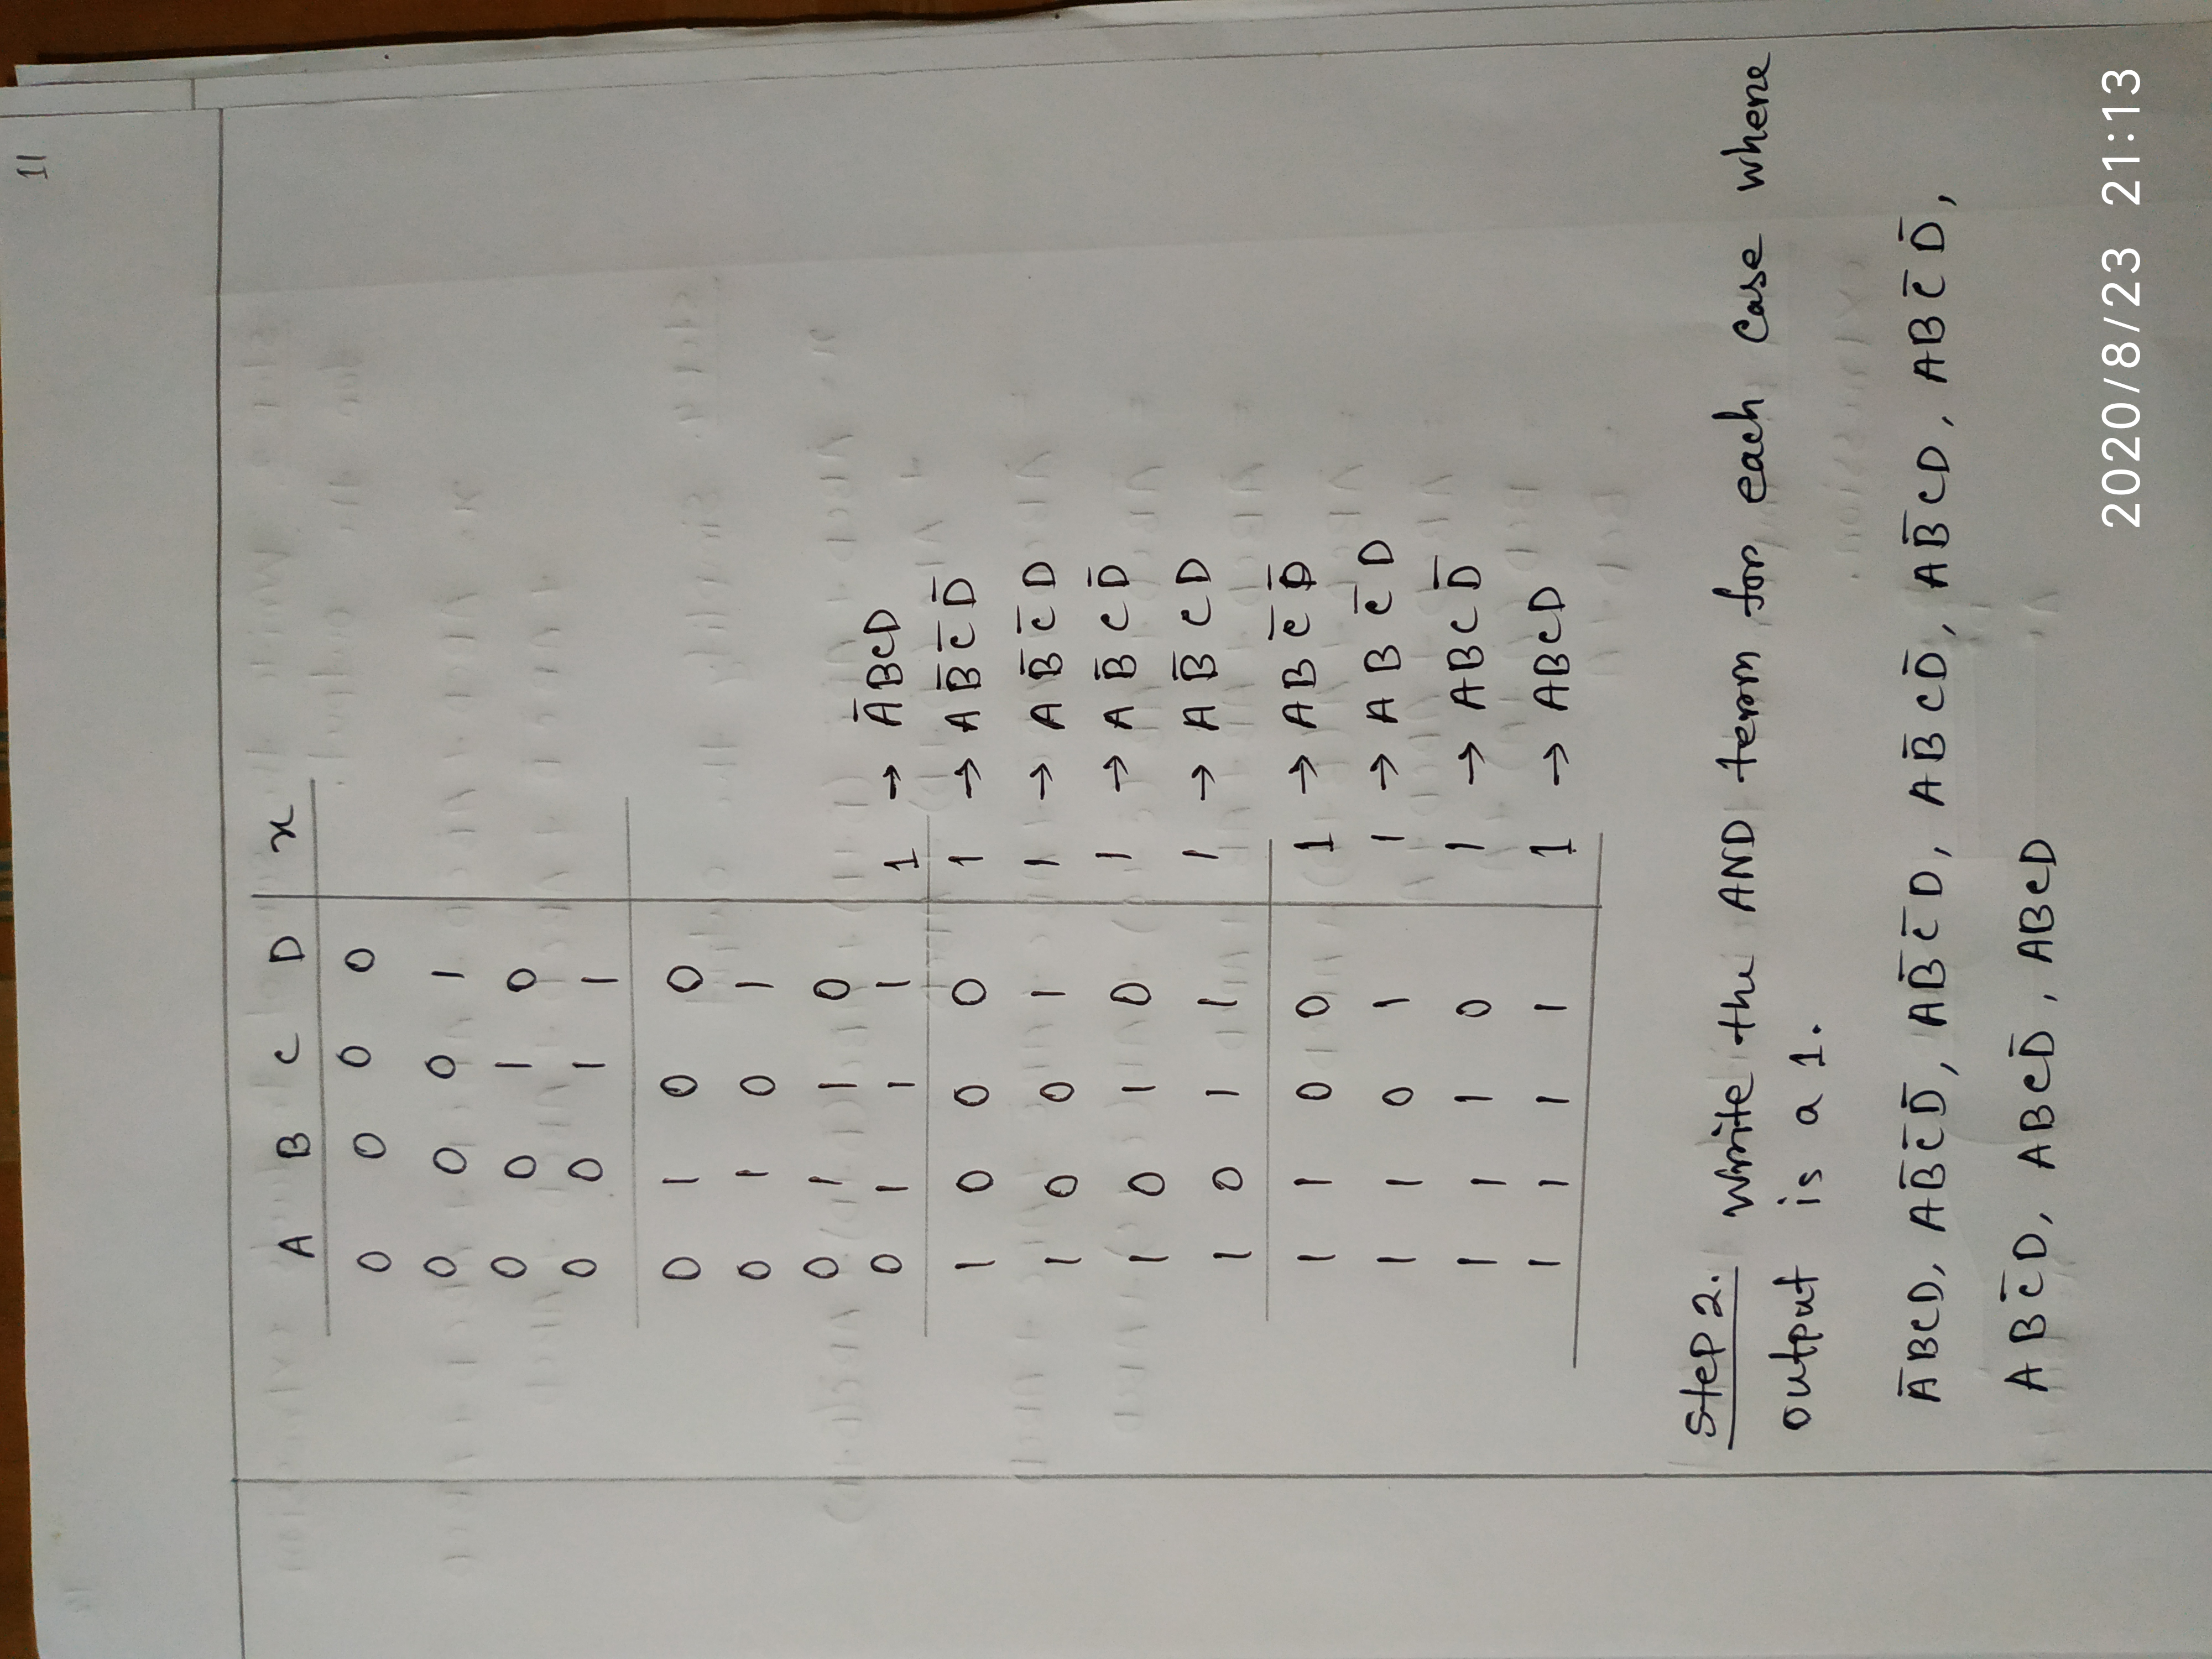 11
A B C D x
0 0 0 0
0 0 0 1
0 0 1 0
0 0 1 1
0 1 0 0
0 1 0 1
0 1 1 0
0 1 1 1 1 → A̅BCD
1 0 0 0 1 → AB̅C̅D̅
1 0 0 1 1 → AB̅C̅D
1 0 1 0 1 → AB̅CD̅
1 0 1 1 1 → AB̅CD
1 1 0 0 1 → ABC̅D̅
1 1 0 1 1 → ABC̅D
1 1 1 0 1 → ABCD̅
1 1 1 1 1 → ABCD
Step 2. Write the AND term for each case where
output is a 1.
A̅BCD, AB̅C̅D̅, AB̅C̅D, AB̅CD̅, AB̅CD, ABC̅D̅,
ABC̅D, ABCD̅, ABCD
2020/8/23 21:13